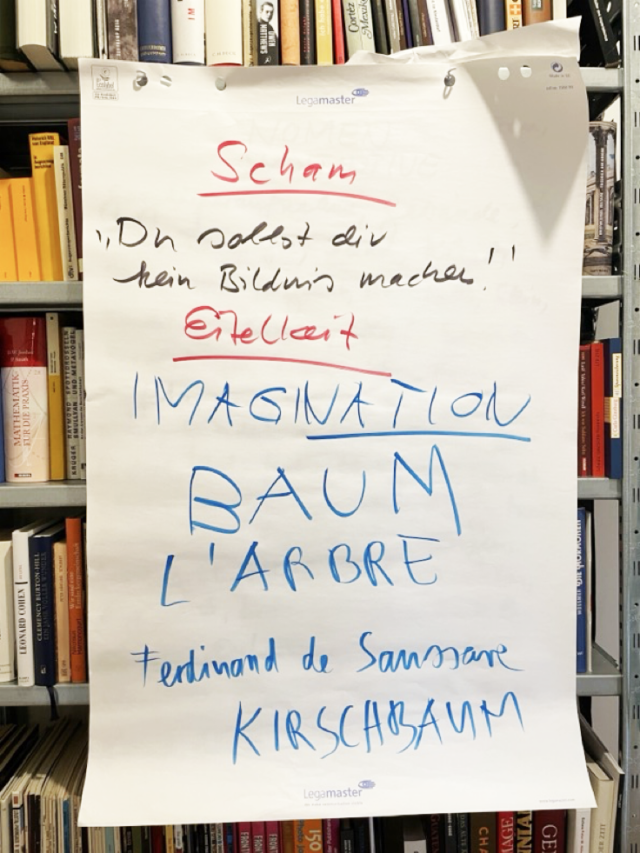 Legamaster
Scham
„Du sollst dir
kein Bildnis machen!"
Eitelkeit
IMAGINATION
BAUM
L'ARBRE
Ferdinand de Saussure
KIRSCHBAUM
Legamaster
MATHEMATIK
FÜR DIE PRAXIS
LEONARD COHEN
CLEMENCY BURTON-HILL